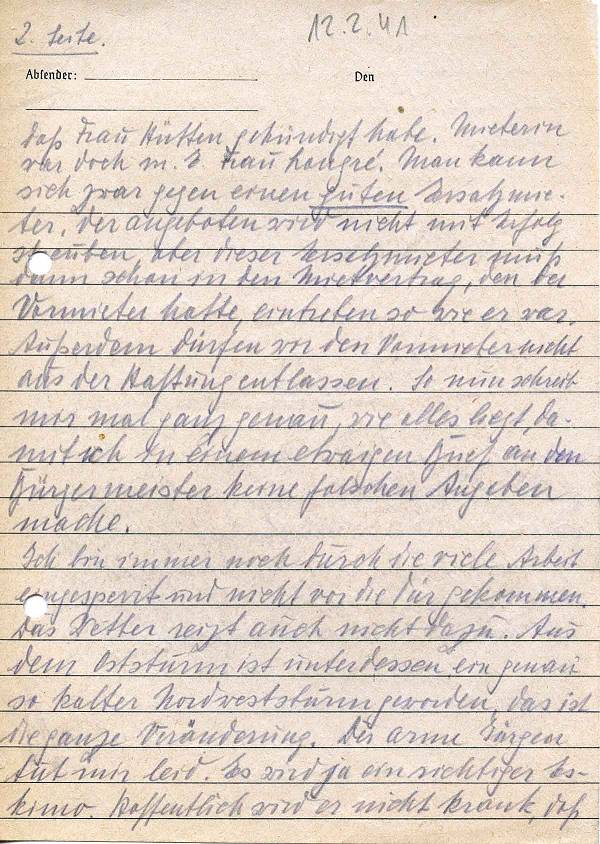 12.2.41
2. Seite.
Absender:
Den
daß Frau Hütten gekündigt habe. Mieterin
war doch m. E. Frau Longré. Man kann
sich zwar gegen einen guten Ersatzmie-
ter, der angeboten wird nicht mit Erfolg
sträuben, aber dieser Ersatzmieter muß
dann schon in den Mietvertrag, den der
Vormieter hatte, eintreten so wie er war.
Außerdem dürfen wir den Vormieter nicht
aus der Haftung entlassen. So nun schreib
mir mal ganz genau, wie alles liegt, da-
mit ich in einem etwaigen Brief an den
Bürgermeister keine falschen Angaben
mache.
Ich bin immer noch durch die viele Arbeit
eingesperrt und nicht vor die Tür gekommen.
Das Wetter reizt auch nicht dazu. Aus
dem Oststurm ist unterdessen ein genau
so kalter Nordweststurm geworden, das ist
die ganze Veränderung. Der arme Jürgen
tut mir leid. Es wird ja ein richtiger Es-
kimo. Hoffentlich wird er nicht krank, daß